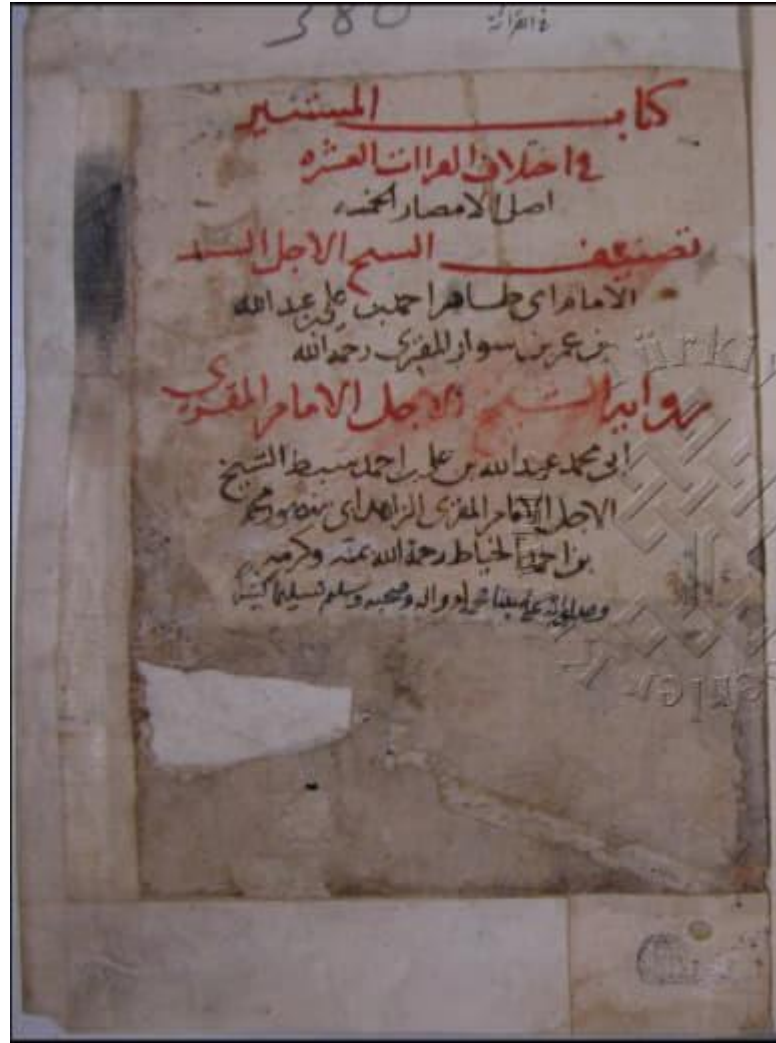 380
في القراءة
كتاب المستنير
في اختلاف القراات العشره
اهل الامصار الخمسه
تصنيف الشيخ الاجل السيد
الامام ابي طاهر احمد بن علي بن عبد الله
بن عمر بن سوار المقري رحمه الله
رواية الشيخ الاجل الامام المقري
ابي محمد عبد الله بن علي بن احمد سبط الشيخ
الاجل الامام المقري الزاهد ابي منصور محمد
بن احمد الخياط رحمة الله بمنه وكرمه
وصلى الله على نبينا محمد واله وصحبه وسلم تسليما كثيرا